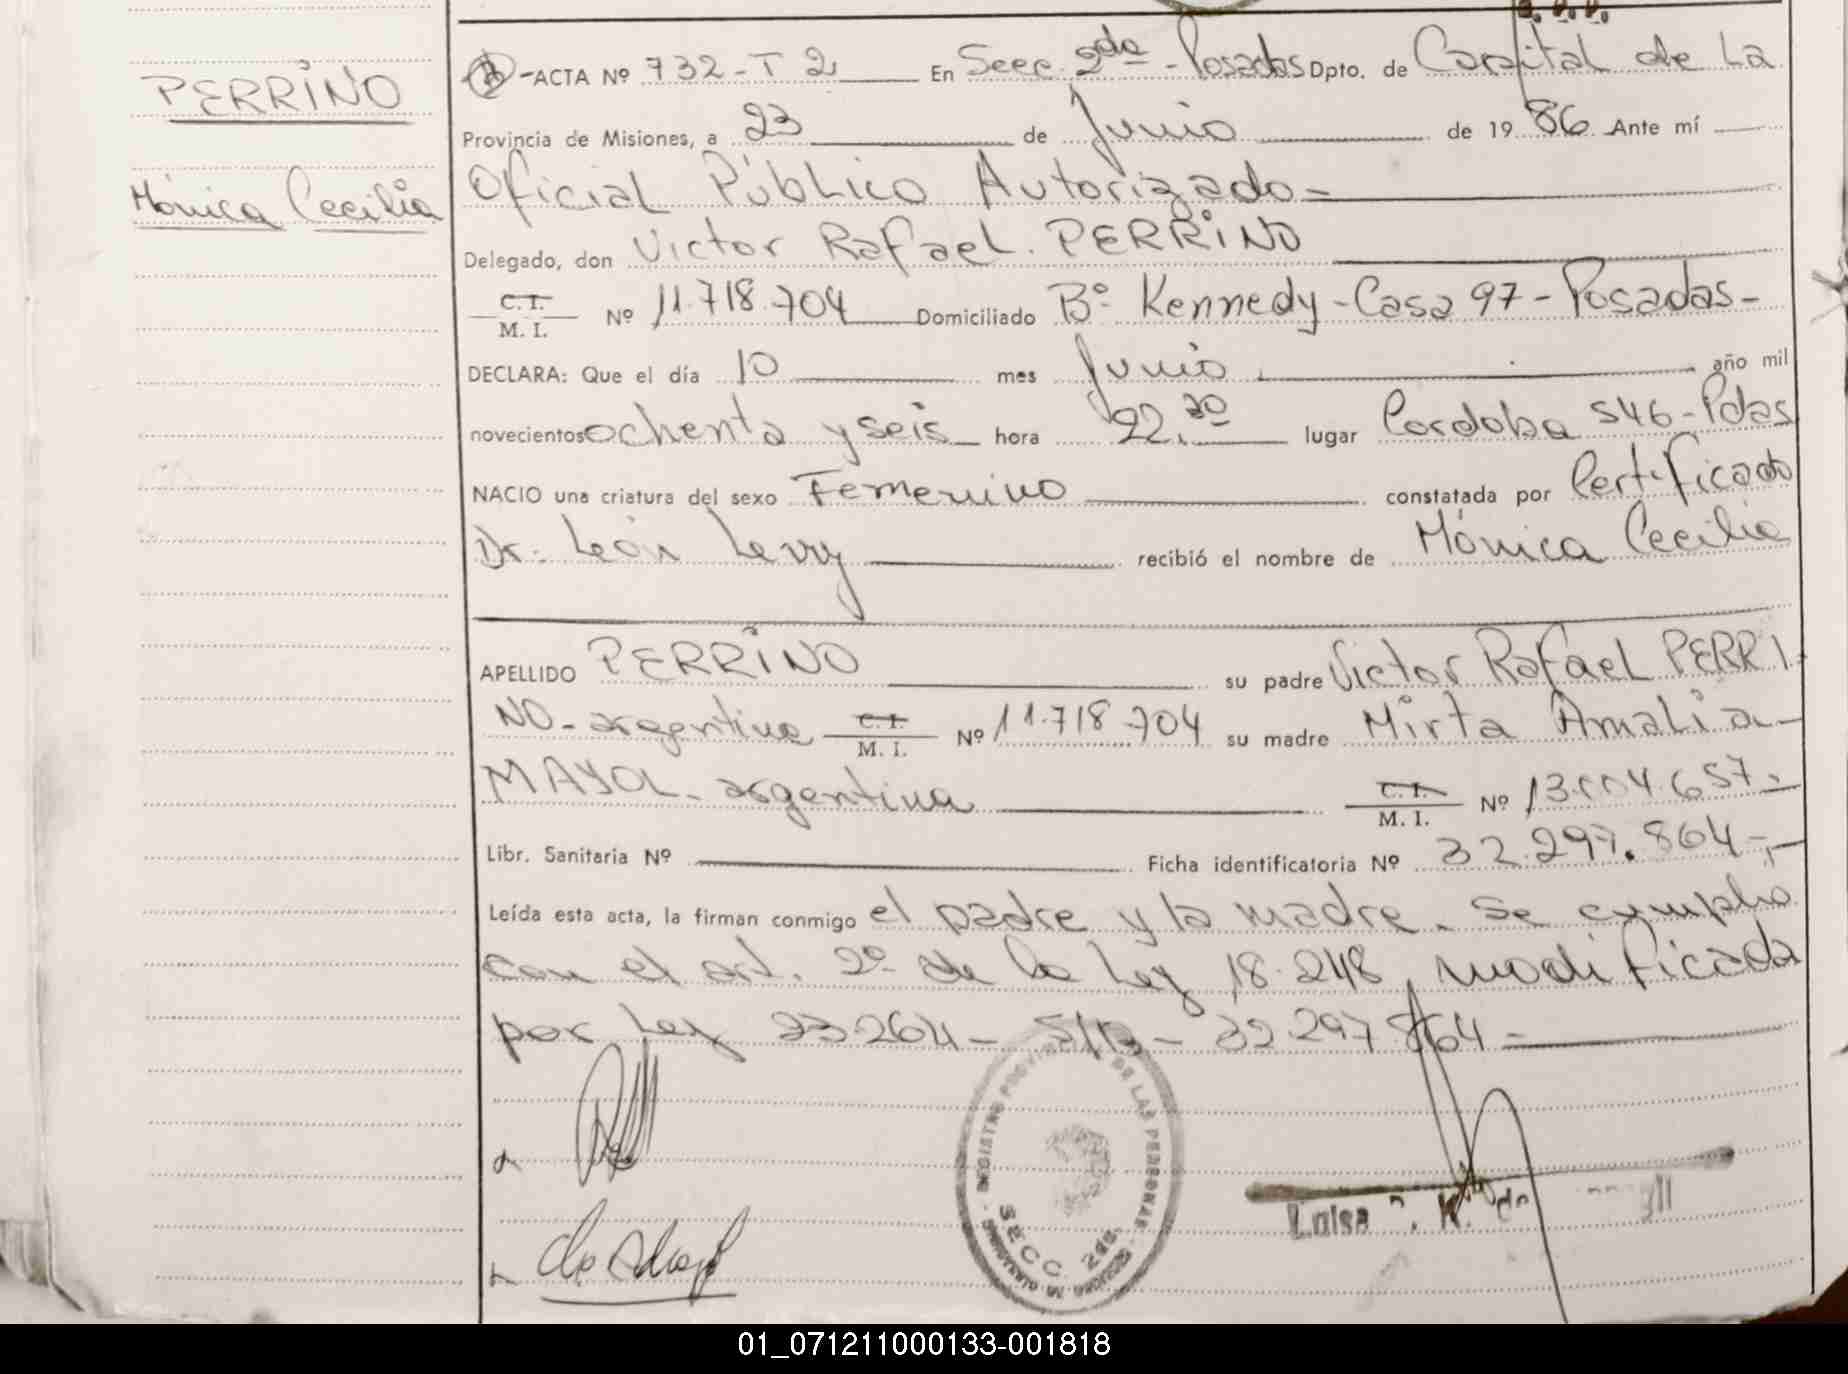 PERRINO
Mónica Cecilia
ACTA Nº 732-T 2 En Secc. 2da - Posadas Dpto. de Capital de La
Provincia de Misiones, a 23 de Junio de 1986 Ante mí
Oficial Público Autorizado=
Delegado, don Victor Rafael. PERRINO
C.I. M. I. Nº 11.718.704 Domiciliado Bº Kennedy - Casa 97 - Posadas -
DECLARA: Que el día 10 mes Junio año mil
novecientos ochenta y seis hora 22. lugar Cordoba 546 - Pdas
NACIO una criatura del sexo Femenino constatada por Certificado
Dr. León Levy recibió el nombre de Mónica Cecilia
APELLIDO PERRINO su padre Victor Rafael PERRI
NO - argentino C.I. M. I. Nº 11.718.704 su madre Mirta Amalia -
MAYOL - argentina C.I. M. I. Nº
Libr. Sanitaria Nº Ficha identificatoria Nº 32.297.864 -
Leída esta acta, la firman conmigo el padre y la madre. Se cumplió
con el art. 2º de la Ley 18.248, modificada
por Ley 23.264 - - 32.297.864 =
REGISTRO PROVINCIAL DE LAS PERSONAS
SECC. 2da.
Luisa
01_071211000133-001818